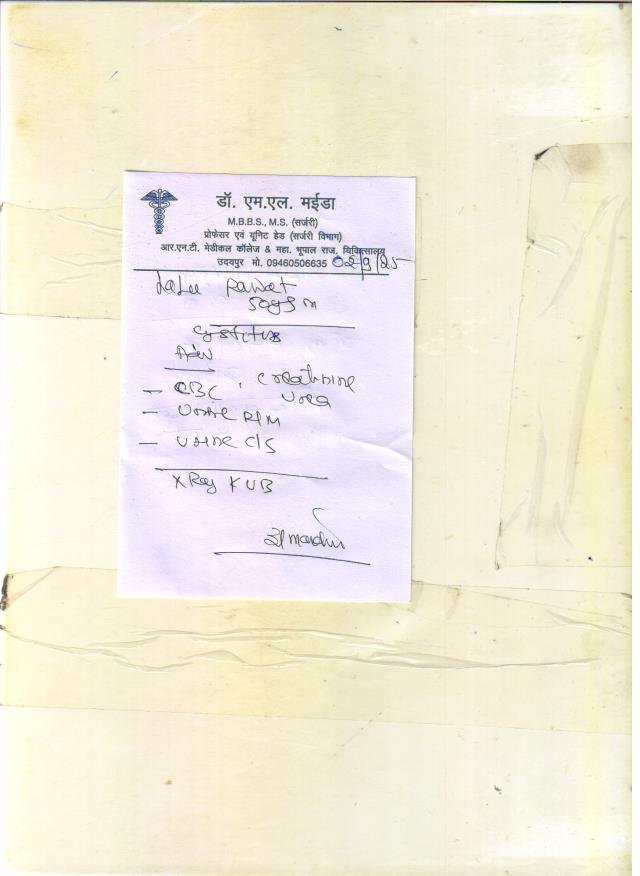 डॉ. एम.एल. मईडा
M.B.B.S., M.S. (सर्जरी)
प्रोफेसर एवं यूनिट हेड (सर्जरी विभाग)
आर.एन.टी. मेडीकल कॉलेज & महा. भूपाल राज. चिकित्सालय
उदयपुर मो. 09460506635 02/9/25
Lalu Rawat
50yrs m
cystitis
Adv
- CBC, creatinine
urea
- urine R/M
- urine C/S
X Ray KUB